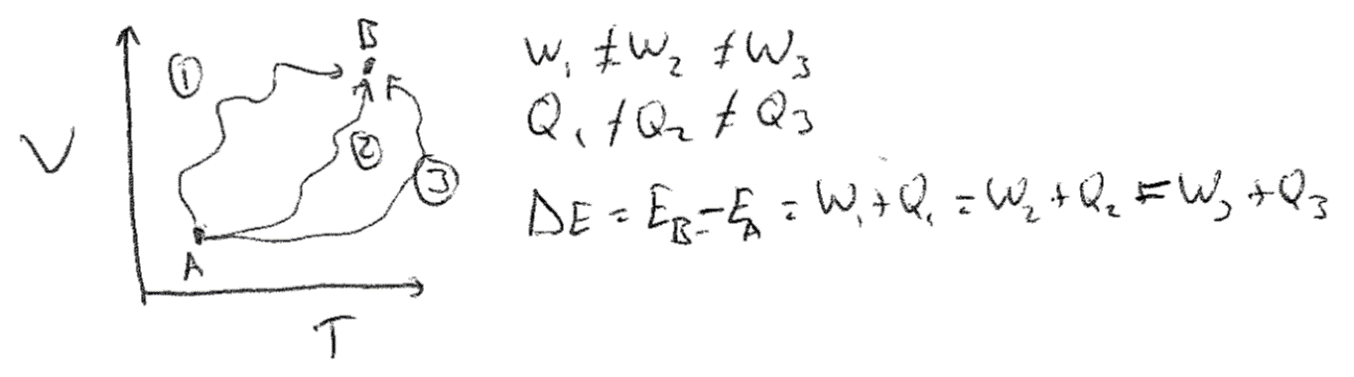 B
①
②
③
V
A
T
W₁ ≠ W₂ ≠ W₃
Q₁ ≠ Q₂ ≠ Q₃
ΔE = E_B - E_A = W₁ + Q₁ = W₂ + Q₂ = W₃ + Q₃